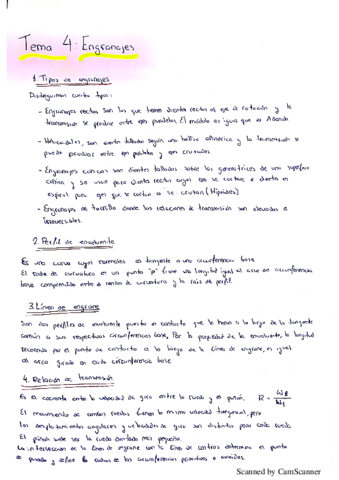 Tema 4: Engranajes
1. Tipos de engranajes
Distinguimos cuatro tipos:
- Engranajes rectos son los que tienen dientes rectos al eje de rotación y la
transmisión se produce entre ejes paralelos. El módulo es igual que el
- Helicoidales, son dientes tallados según una hélice cilíndrica y la transmisión se
puede producir entre ejes paralelos y ejes cruzados.
- Engranajes cónicos son dientes tallados sobre las generatrices de una superficie
cónica y se usan para dientes rectos cuyos ejes se cortan o dientes en
espiral pues que se cortan o se cruzan (Hipoides)
- Engranajes de tornillo donde las relaciones de transmisión son elevadas e
irreversibles.
2. Perfil de envolvente
Es una curva cuyas normales es tangente a una circunferencia base
El radio de curvatura en un punto "p" tiene una longitud igual al arco de circunferencia
base comprendido entre el centro de curvatura y la raíz del perfil.
3. Línea de engrane
Son dos perfiles de envolvente puestos en contacto que lo harán a lo largo de la tangente
común a sus respectivas circunferencias base. Por la propiedad de la envolvente, la longitud
recorrida por el punto de contacto a lo largo de la línea de engrane, es igual
al arco girado en cada circunferencia base
4. Relación de transmisión
Es el cociente entre la velocidad de giro entre la rueda y el piñón. R =
El movimiento de ambas ruedas tienen la misma velocidad tangencial, pero
los desplazamientos angulares y velocidades de giro son distintos para cada rueda
El piñón suele ser la rueda dentada más pequeña.
La intersección de la línea de engrane con la línea de centros determina el punto
y define los radios de las circunferencias primitivas o axoides.
Scanned by CamScanner